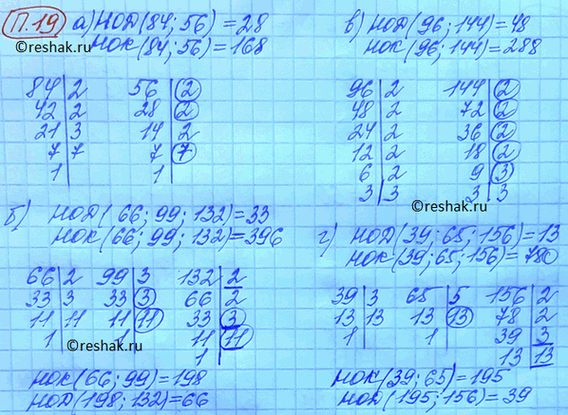 П.19 а) НОД(84; 56) = 28
НОК(84; 56) = 168
©reshak.ru
84 | 2 56 | 2
42 | 2 28 | 2
21 | 3 14 | 2
7 | 7 7 | 7
1 | 1 |
в) НОД(96; 144) = 48
НОК(96; 144) = 288
96 | 2 144 | 2
48 | 2 72 | 2
24 | 2 36 | 2
12 | 2 18 | 2
6 | 2 9 | 3
3 | 3 3 | 3
©reshak.ru
б) НОД(66; 99; 132) = 33
НОК(66; 99; 132) = 396
66 | 2 99 | 3 132 | 2
33 | 3 33 | 3 66 | 2
11 | 11 11 | 11 33 | 3
1 | 1 | 11 | 11
1 |
©reshak.ru
НОК(66; 99) = 198
НОД(198; 132) = 66
г) НОД(39; 65; 156) = 13
НОК(39; 65; 156) = 780
39 | 3 65 | 5 156 | 2
13 | 13 13 | 13 78 | 2
1 | 1 | 39 | 3
13 | 13
©reshak.ru
НОК(39; 65) = 195
НОД(195; 156) = 39